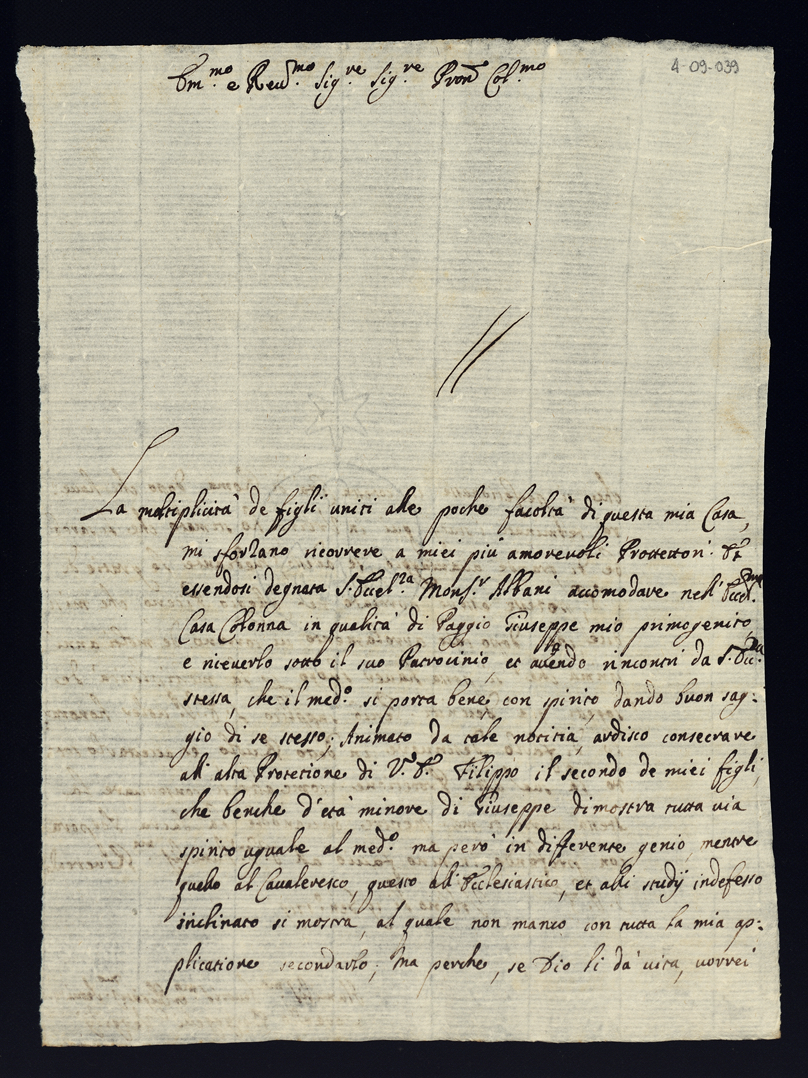 Em.mo e Reu.mo Sig.re Sig.re Pron Col.mo
4-09-039
La moltiplicità de figli uniti alle poche facoltà di questa mia Casa,
mi sforzano ricorrere a miei più amorevoli Protettori. Et
essendosi degnata S. Eccel.za Mons.r Albani accomodare nell' Eccel.ma
Casa Colonna in qualità di Paggio Giuseppe mio primogenito,
e riceverlo sotto il suo Patrocinio, et avendo rincontri da S. Ecc.za
stessa, che il med.o si porta bene, con spirito, dando buon sag:
gio di se stesso; Animato da tale notitia, ardisco consecrare
all' alta Protetione di V. E. Filippo il secondo de miei figli,
che benche d'età minore di Giuseppe dimostra tutta via
spirito uguale al med.o ma però in differente genio, mentre
quello al Cavaleresco, questo all' Ecclesiastico, et alli studij indefesso
inclinato si mostra, al quale non manco con tutta la mia ap:
plicatione secondarlo; Ma perche, se Dio li dà vita, vorrei